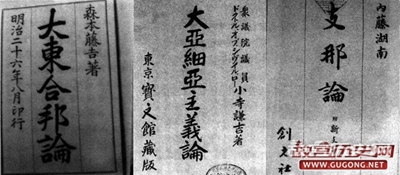 森本藤吉著
大東合邦論
明治二十六年八月印行
衆議院議員
ドクトルオブシヴイルロー
小寺謙吉著
大亞細亞主義論
東京 寳文館藏版
內藤湖南
支那論
創元社
故宫历史网
WWW.GUGONG.NET